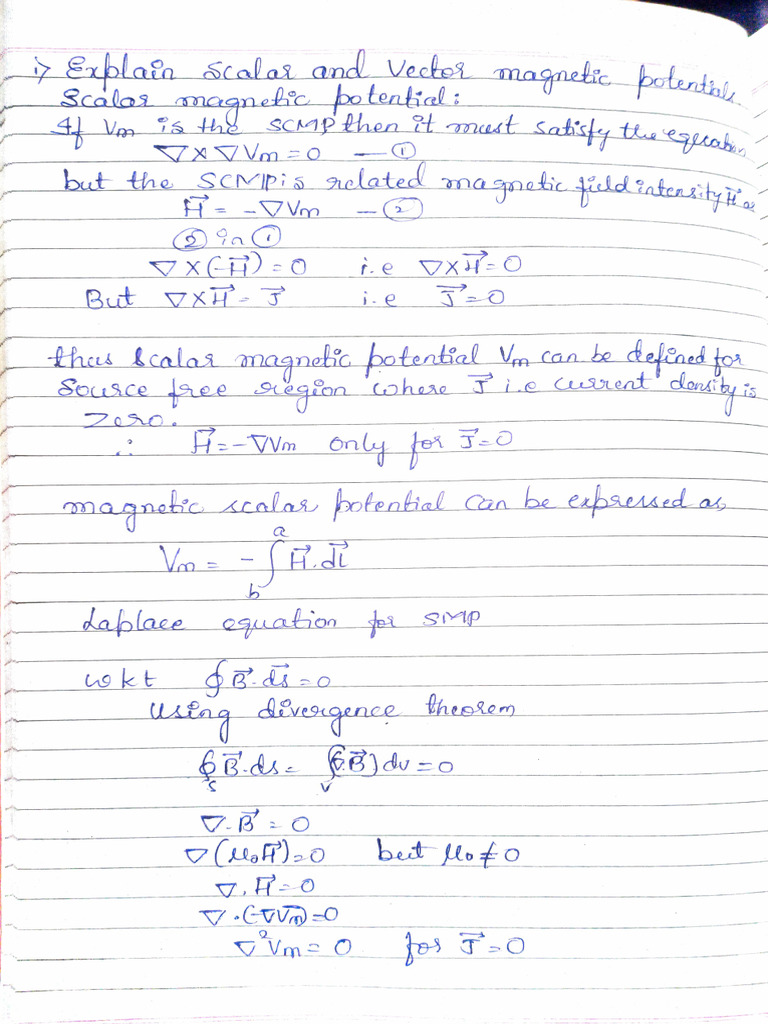 i) Explain Scalar and Vector magnetic potentials
Scalar magnetic potential:
If Vm is the SCMP then it must satisfy the equation
∇×∇Vm=0 —①
but the SCMP is related magnetic field intensity H⃗ as
H⃗ = -∇Vm —②
② in ①
∇×(-H⃗)=0 i.e ∇×H⃗=0
But ∇×H⃗=J⃗ i.e J⃗=0
thus Scalar magnetic potential Vm can be defined for
Source free region where J⃗ i.e current density is
Zero.
∴ H⃗=-∇Vm only for J⃗=0
magnetic scalar potential can be expressed as,
Vm = -∫_b^a H⃗.dl⃗
Laplace equation for SMP
wkt ∮B⃗.ds⃗=0
Using divergence theorem
∮_s B⃗.ds = ∫_v (∇.B⃗)dv=0
∇.B⃗=0
∇(μ₀H⃗)=0 but μ₀≠0
∇.H⃗=0
∇.(-∇Vm)=0
∇²Vm=0 for J⃗=0